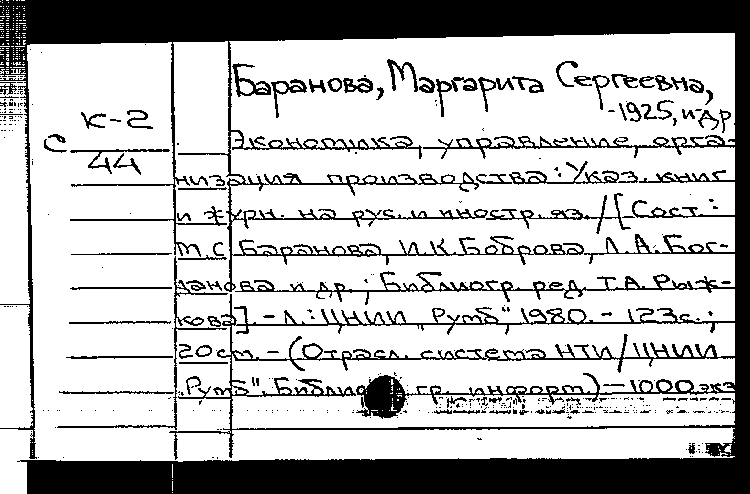 Баранова, Маргарита Сергеевна,
-1925, и др
К-2
С 44
Экономика, управление, орга-
низация производства: Указ. книг
и журн. на рус. и иностр. яз. / [Сост.:
М.С. Баранова, И.К. Боброва, Л.А. Бог-
данова и др.; Библиогр. ред. Т.А. Рыж-
кова]. - Л.: ЦНИИ „Румб", 1980. - 123с.;
20см. - (Отрасл. система НТИ/ЦНИИ
„Румб". Библиогр. информ) - 1000 экз